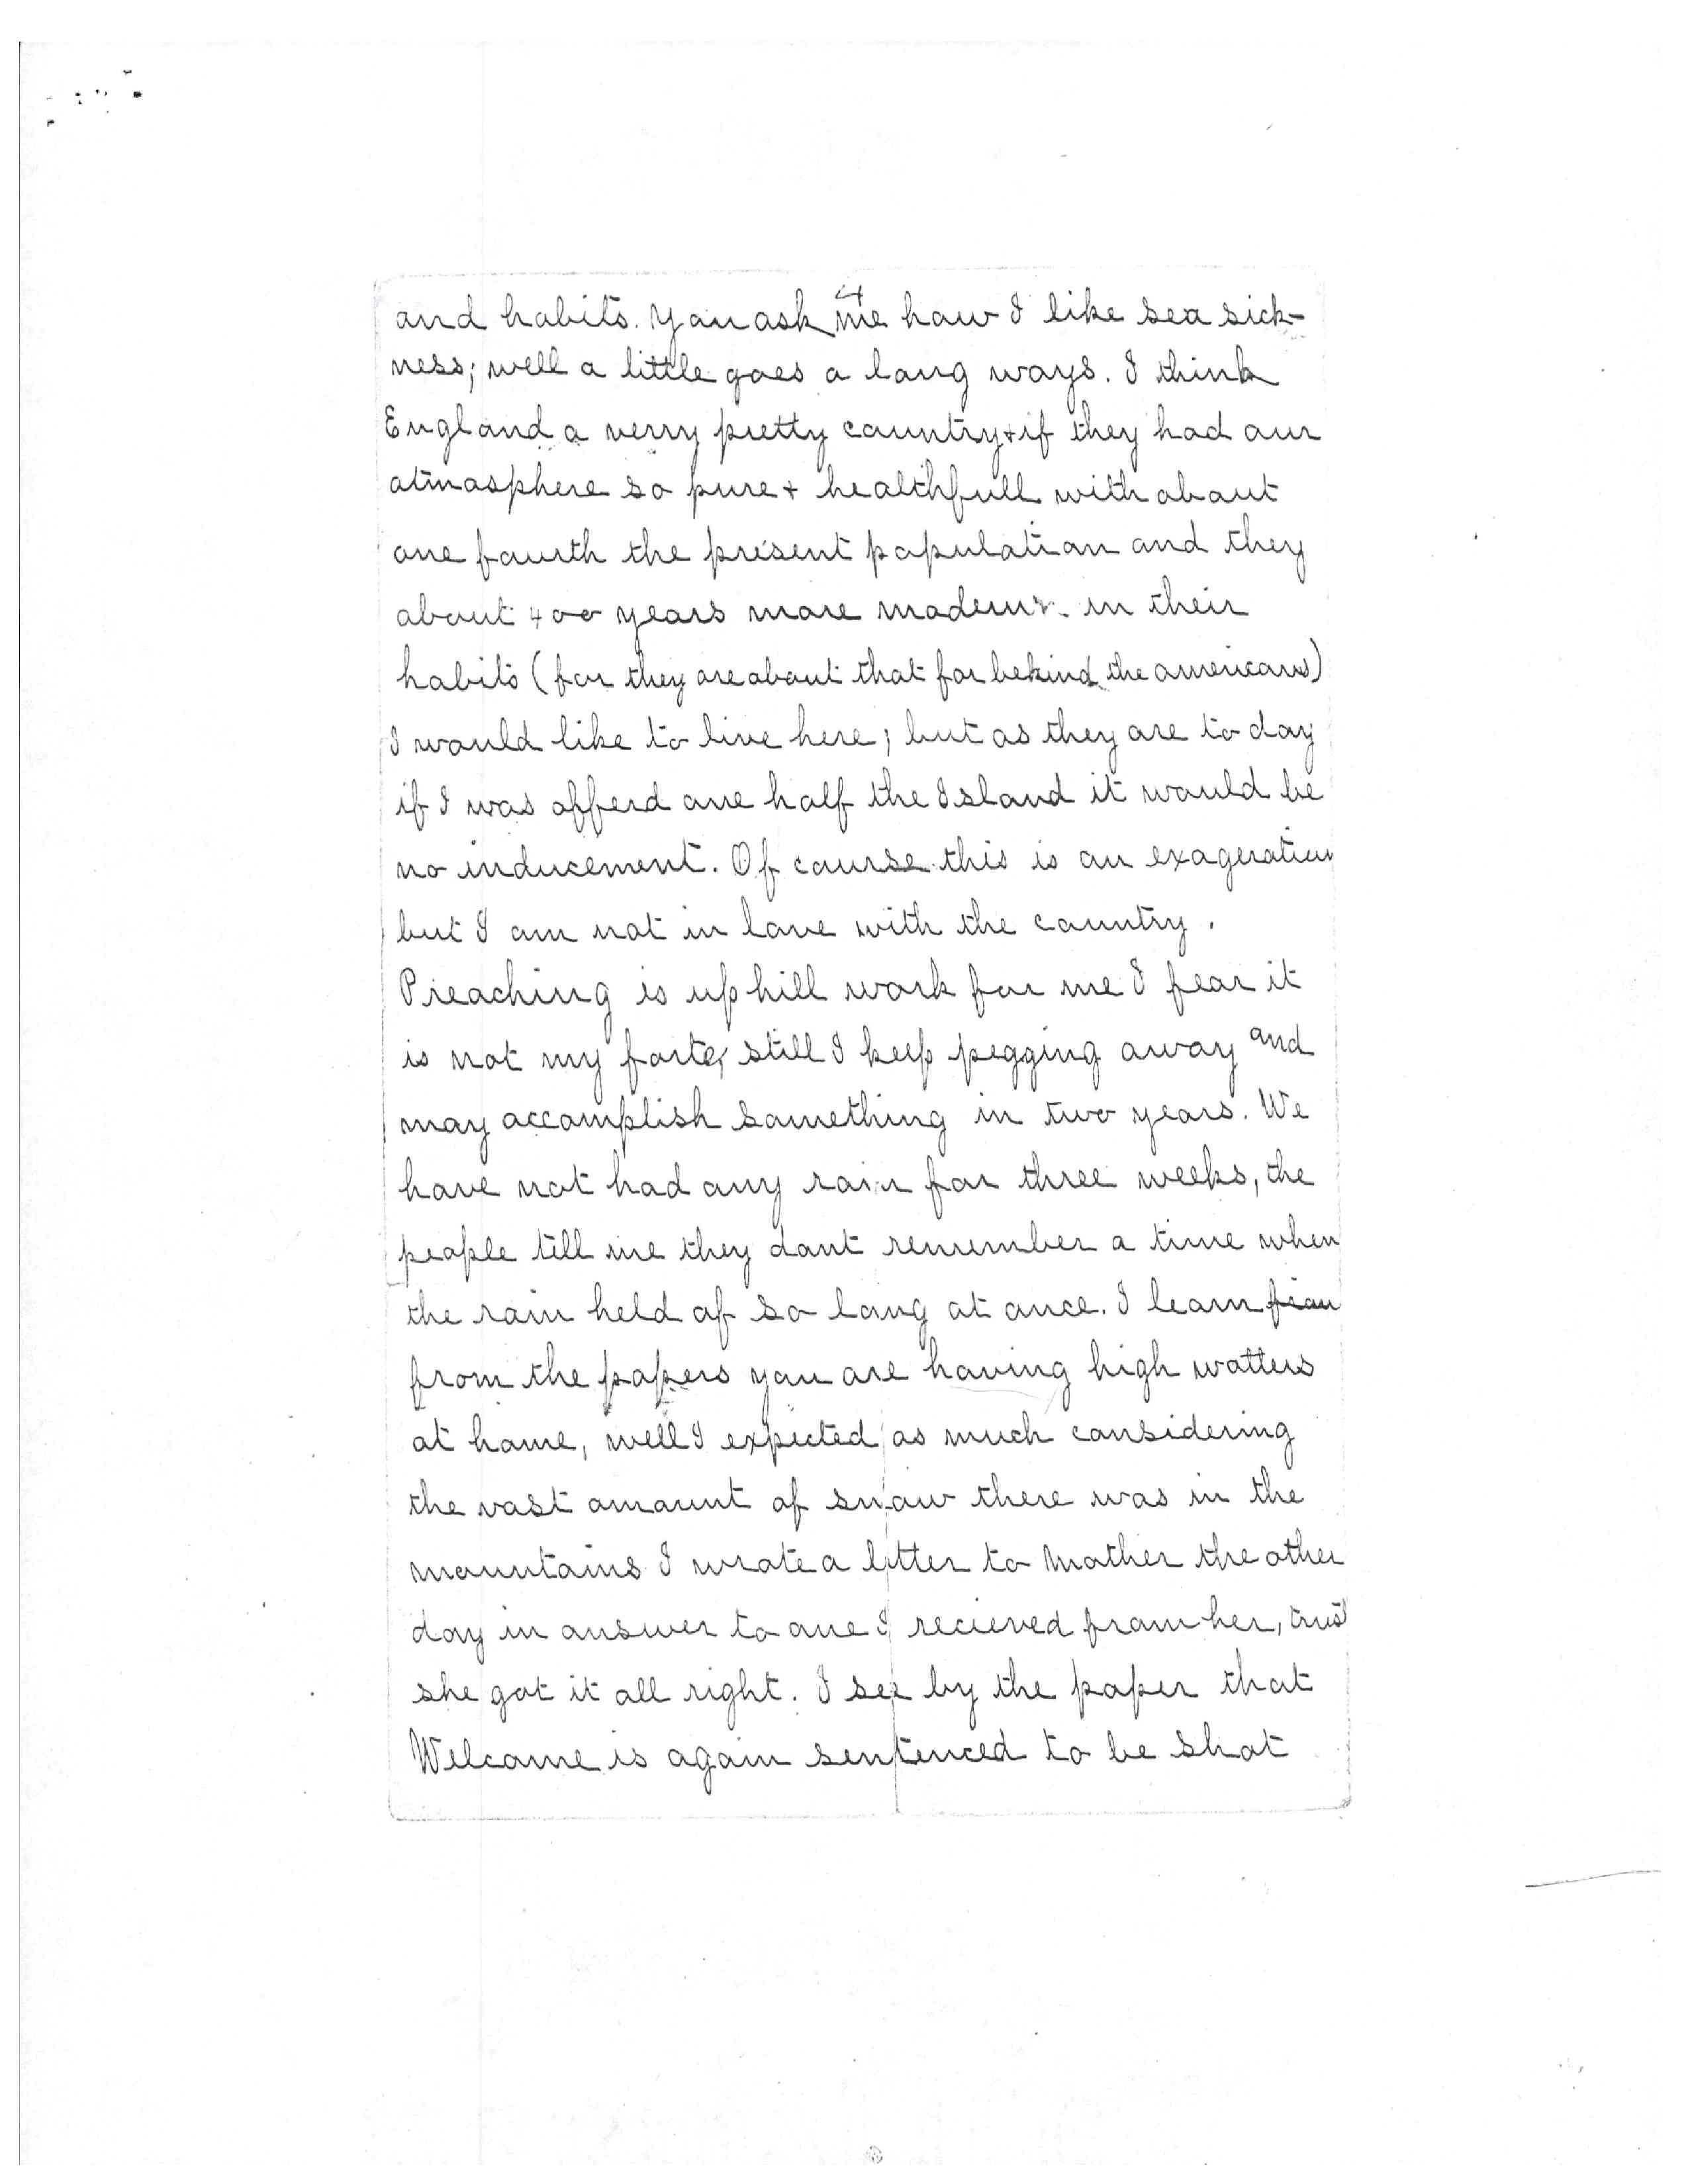 4
and habits. You ask me how I like sea sick-
ness; well a little goes a long ways. I think
England a verry pretty country + if they had our
atmosphere so pure + healthfull with about
one fourth the present population and they
about 400 years more modern in their
habits (for they are about that far behind the americans)
I would like to live here; but as they are to day
if I was offerd one half the Island it would be
no inducement. Of course this is an exageration
but I am not in love with the country.
Preaching is up hill work for me I fear it
is not my forte, still I keep pegging away and
may accomplish something in two years. We
have not had any rain for three weeks, the
people till me they dont remember a time when
the rain held of so long at once. I learn from
from the papers you are having high watters
at home, well I expected as much considering
the vast amount of snow there was in the
mountains I wrote a letter to Mother the other
day in answer to one I recieved from her, trust
she got it all right. I see by the paper that
Welcome is again sentenced to be shot